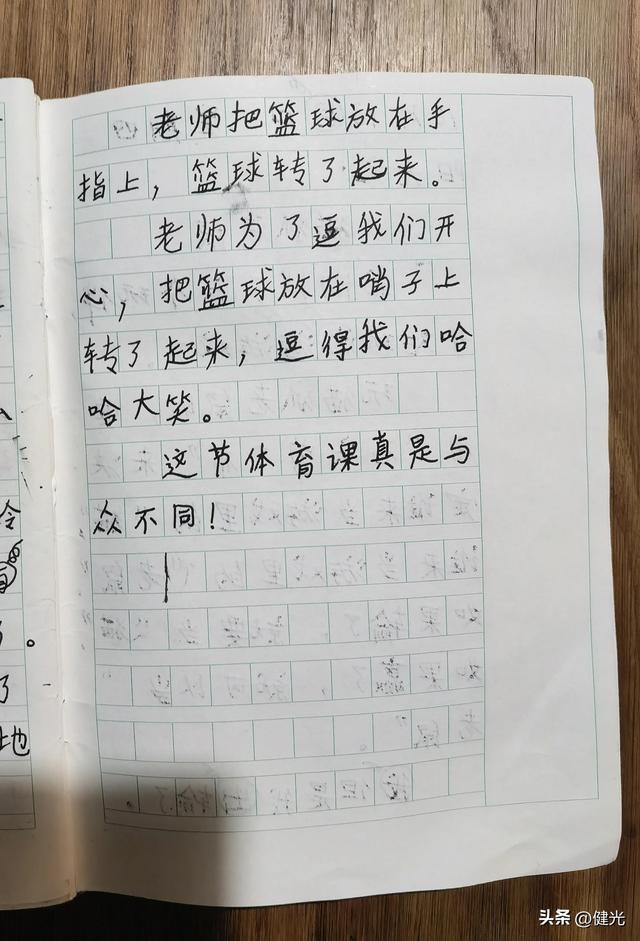 老师把篮球放在手
指上，篮球转了起来。
老师为了逗我们开
心，把篮球放在哨子上
转了起来，逗得我们哈
哈大笑。
这节体育课真是与
众不同！
冷
。
了
地
头条 @健光